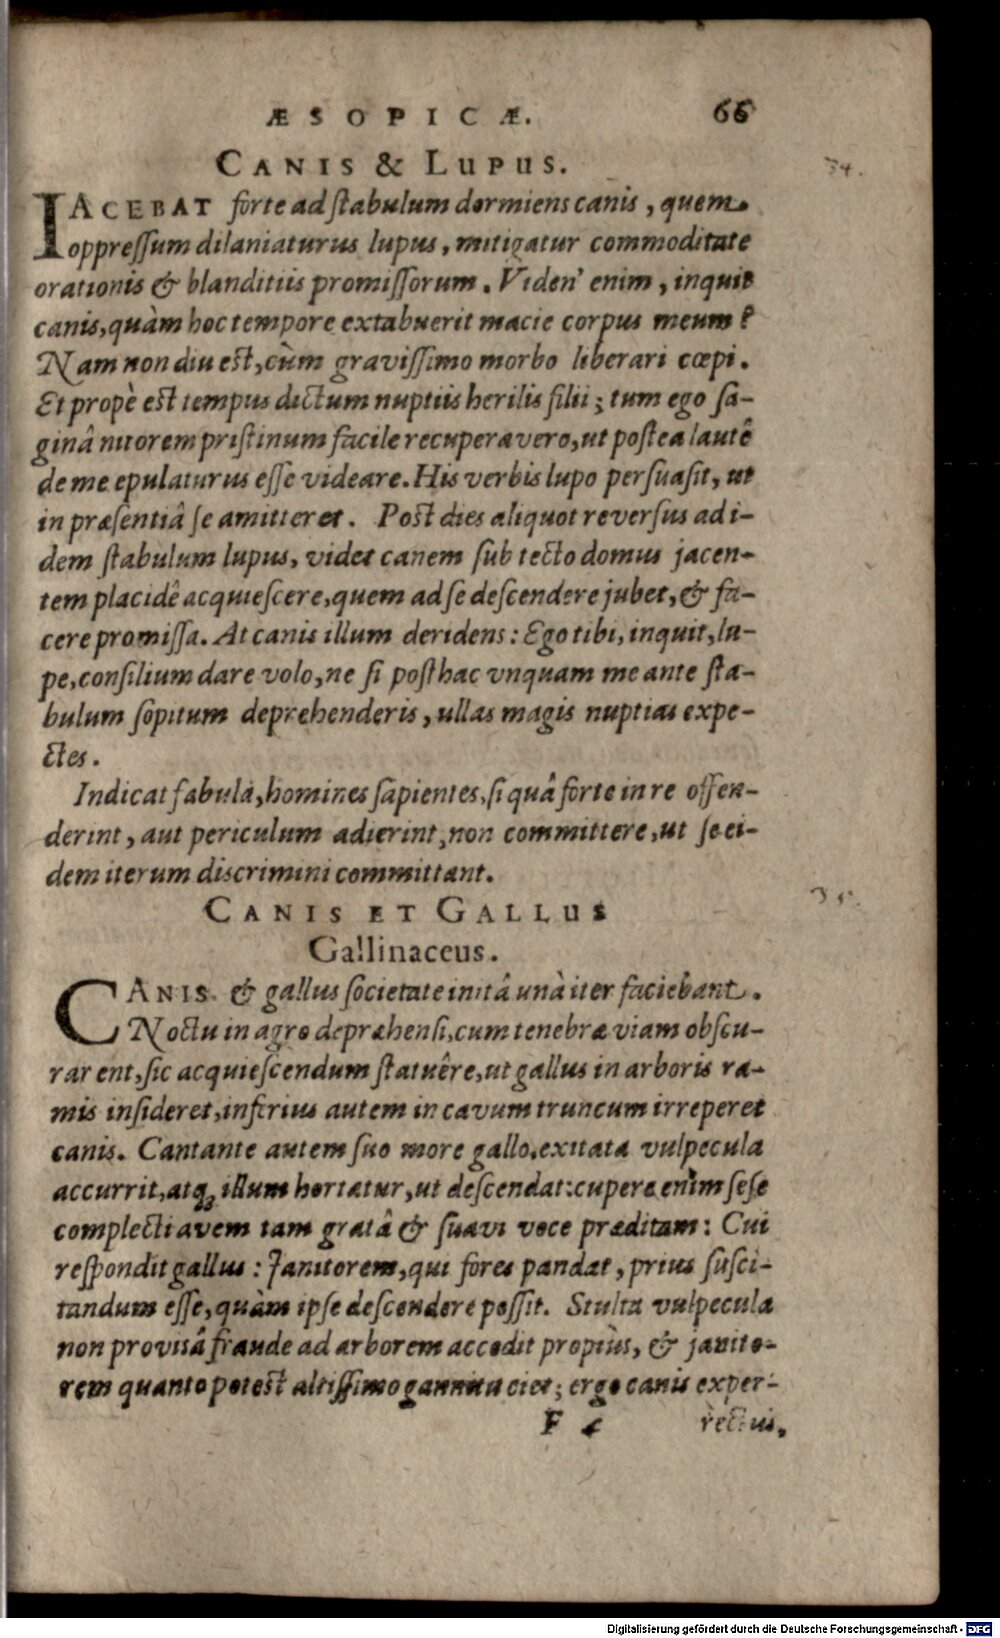 ÆSOPICÆ. 66
CANIS & LUPUS.
34.
IACEBAT forte ad ſtabulum dormiens canis, quem
oppreſſum dilaniaturus lupus, mitigatur commoditate
orationis & blanditiis promiſſorum. Viden' enim, inquit
canis, quàm hoc tempore extabuerit macie corpus meum?
Nam non diu est, cùm graviſſimo morbo liberari cœpi.
Et propè est tempus dictum nuptiis herilis filii; tum ego ſa-
ginâ nitorem priſtinum facile recuperavero, ut poſtea lautê
de me epulaturus eſſe videare. His verbis lupo perſuaſit, ut
in præſentiâ ſe amitteret. Poſt dies aliquot reverſus ad i-
dem ſtabulum lupus, videt canem ſub tecto domus jacen-
tem placidê acquieſcere, quem ad ſe deſcendere jubet, & fa-
cere promiſſa. At canis illum deridens: Ego tibi, inquit, lu-
pe, conſilium dare volo, ne ſi poſthac vnquam me ante ſta-
bulum ſopitum deprehenderis, ullas magis nuptias expe-
ctes.
Indicat fabula, homines ſapientes, ſi quâ forte in re offen-
derint, aut periculum adierint, non committere, ut ſe ei-
dem iterum discrimini committant.
CANIS ET GALLUS
35.
Gallinaceus.
CANIS & gallus ſocietate initâ unà iter faciebant.
Noctu in agro depræhenſi, cum tenebræ viam obſcu-
rarent, ſic acquieſcendum ſtatuêre, ut gallus in arboris ra-
mis inſideret, inferius autem in cavum truncum irreperet
canis. Cantante autem ſuo more gallo, exitata vulpecula
accurrit, atq; illum hortatur, ut deſcendat: cupere enim ſeſe
complecti avem tam gratâ & ſuavi voce præditam: Cui
reſpondit gallus: Janitorem, qui fores pandat, prius ſuſci-
tandum eſſe, quàm ipſe deſcendere poſſit. Stulta vulpecula
non provisâ fraude ad arborem accedit propiùs, & janito-
rem quanto potest altiſſimo gannitu ciet; ergo canis exper-
F 4 rectus,
Digitalisierung gefördert durch die Deutsche Forschungsgemeinschaft - DFG